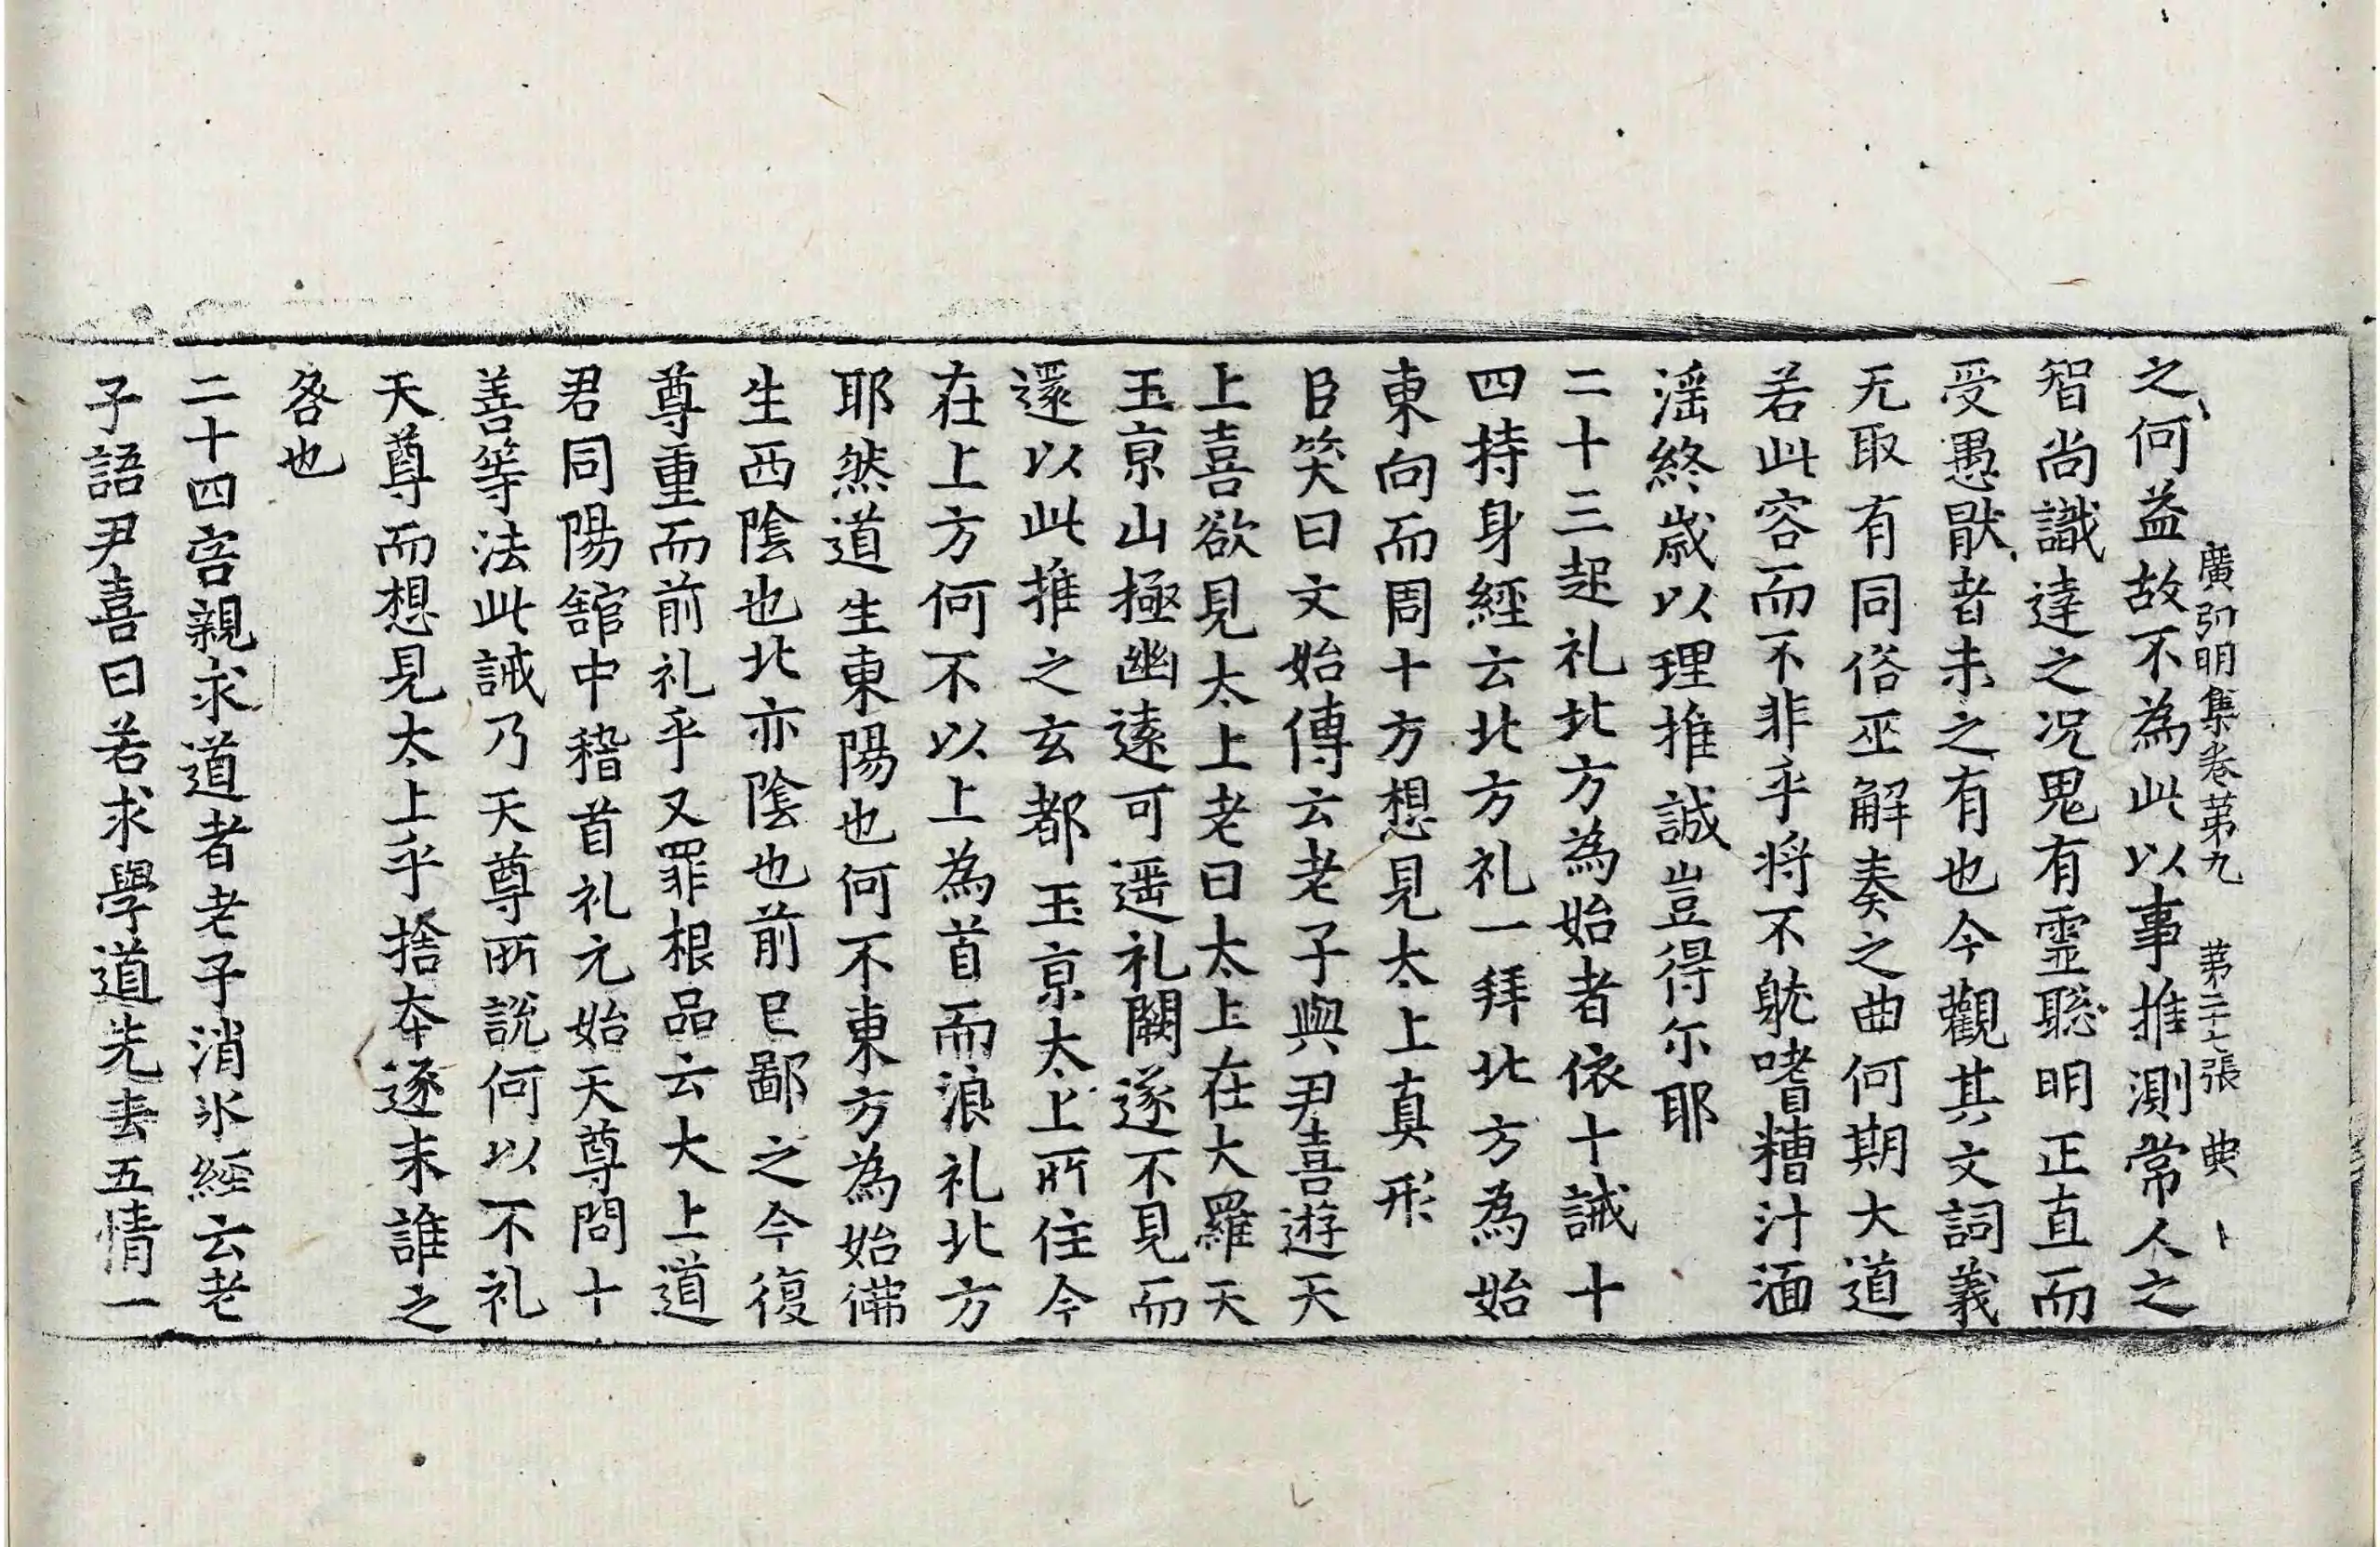 廣弘明集卷苐九　苐二十七張　典
之何益故不為此以事推測常人之
智尚識達之况鬼有霊聡明正直而
受愚猒者未之有也今觀其文詞義
无取有同俗巫解奏之曲何期大道
若此容而不非乎将不躭嗜糟汁湎
淫終歳以理推誠豈得尓耶
二十三起礼北方為始者依十誡十
四持身經云北方礼一拜北方為始
東向而周十方想見太上真形
臣笑曰文始傳云老子與尹喜遊天
上喜欲見太上老曰太上在大羅天
玉京山極幽遠可遥礼闕遂不見而
還以此推之玄都玉京太上所住今
在上方何不以上為首而浪礼北方
耶然道生東陽也何不東方為始佛
生西陰也北亦陰也前已鄙之今復
尊重而前礼乎又罪根品云大上道
君同陽舘中稽首礼元始天尊問十
善等法此誡乃天尊所說何以不礼
天尊而想見太上乎捨夲逐末誰之
咎也
二十四害親求道者老子消氷經云老
子語尹喜曰若求學道先去五情一